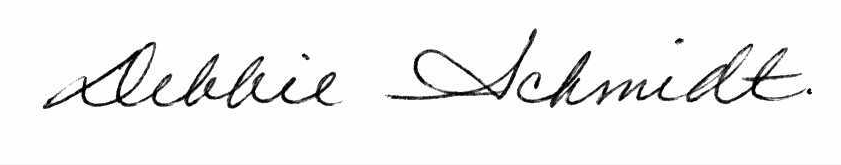 Debbie Schmidt.